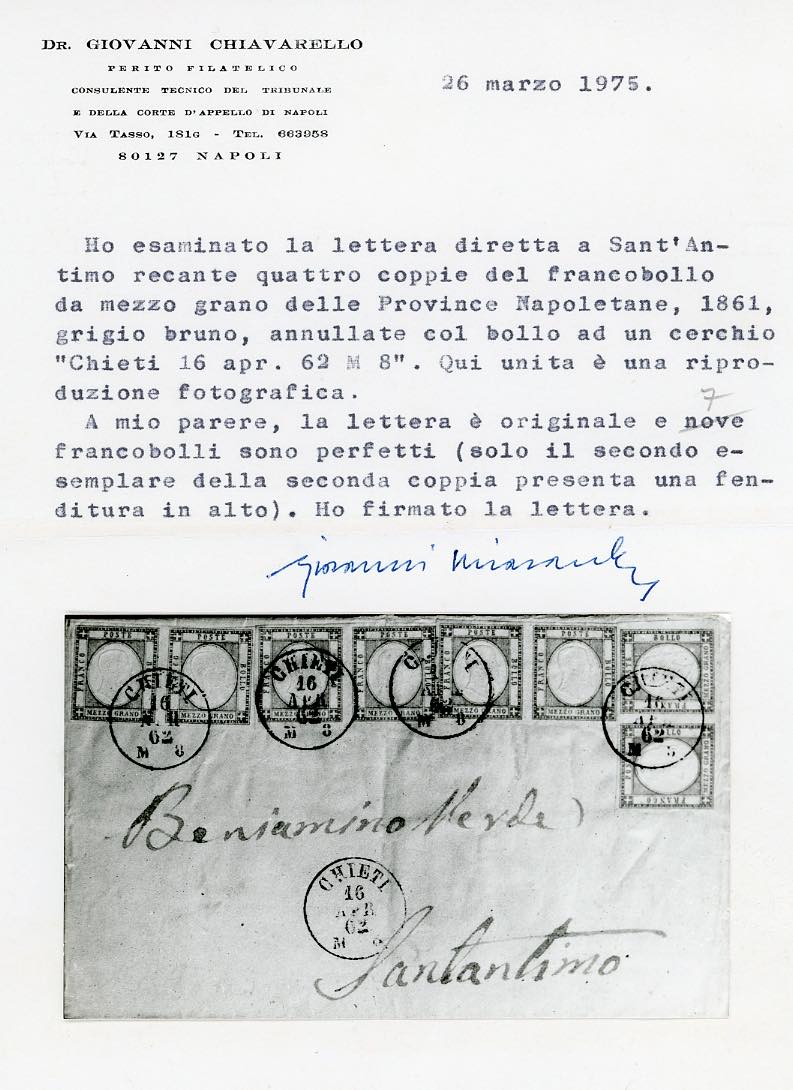 DR. GIOVANNI CHIAVARELLO
PERITO FILATELICO
CONSULENTE TECNICO DEL TRIBUNALE
E DELLA CORTE D'APPELLO DI NAPOLI
VIA TASSO, 181G - TEL. 663958
80127 NAPOLI
26 marzo 1975.
Ho esaminato la lettera diretta a Sant'An-
timo recante quattro coppie del francobollo
da mezzo grano delle Province Napoletane, 1861,
grigio bruno, annullate col bollo ad un cerchio
"Chieti 16 apr. 62 M 8". Qui unita è una ripro-
duzione fotografica.
7
A mio parere, la lettera è originale e nove
francobolli sono perfetti (solo il secondo e-
semplare della seconda coppia presenta una fen-
ditura in alto). Ho firmato la lettera.
Giovanni
FRANCO POSTE MEZZO GRANO
POSTE BOLLO MEZZO GRANO
POSTE
FRANCO POSTE MEZZO GRANO
POSTE BOLLO MEZZO GRANO
POSTE BOLLO MEZZO GRANO
BOLLO
FRANCO
CHIETI
16
62
M 8
CHIETI
16
APR
62
M 8
M 8
CHIETI
16
62
M
Beniamino Verde
CHIETI
16
APR
62
M
Santantimo